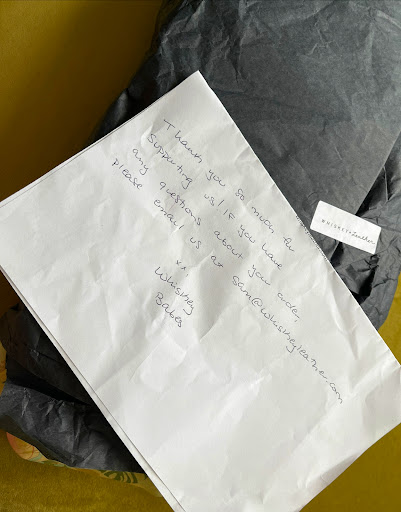 Thank you so much for
supporting us! If you have
any questions about your order,
please email us at sam@whiskeyleather.com
xx
Whiskey
Babes
WHISKEY Leather